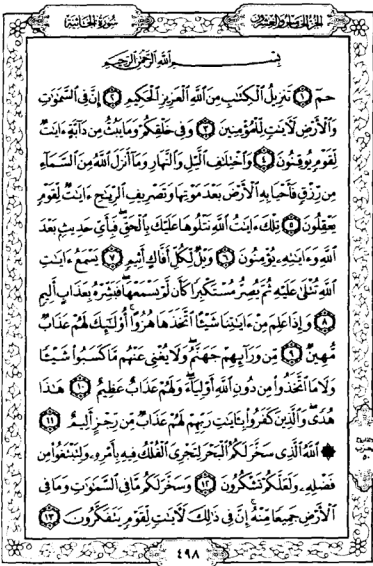 الجزء الخامس والعشرون
سورة الجاثية
بِسْمِ اللَّهِ الرَّحْمَٰنِ الرَّحِيمِ
حمٓ ١ تَنزِيلُ ٱلْكِتَٰبِ مِنَ ٱللَّهِ ٱلْعَزِيزِ ٱلْحَكِيمِ ٢ إِنَّ فِى ٱلسَّمَٰوَٰتِ
وَٱلْأَرْضِ لَءَايَٰتٍ لِّلْمُؤْمِنِينَ ٣ وَفِى خَلْقِكُمْ وَمَا يَبُثُّ مِن دَآبَّةٍ ءَايَٰتٌ
لِّقَوْمٍ يُوقِنُونَ ٤ وَٱخْتِلَٰفِ ٱلَّيْلِ وَٱلنَّهَارِ وَمَآ أَنزَلَ ٱللَّهُ مِنَ ٱلسَّمَآءِ
مِن رِّزْقٍ فَأَحْيَا بِهِ ٱلْأَرْضَ بَعْدَ مَوْتِهَا وَتَصْرِيفِ ٱلرِّيَٰحِ ءَايَٰتٌ لِّقَوْمٍ
يَعْقِلُونَ ٥ تِلْكَ ءَايَٰتُ ٱللَّهِ نَتْلُوهَا عَلَيْكَ بِٱلْحَقِّ فَبِأَىِّ حَدِيثٍۭ بَعْدَ
ٱللَّهِ وَءَايَٰتِهِۦ يُؤْمِنُونَ ٦ وَيْلٌ لِّكُلِّ أَفَّاكٍ أَثِيمٍ ٧ يَسْمَعُ ءَايَٰتِ
ٱللَّهِ تُتْلَىٰ عَلَيْهِ ثُمَّ يُصِرُّ مُسْتَكْبِرًا كَأَن لَّمْ يَسْمَعْهَا فَبَشِّرْهُ بِعَذَابٍ أَلِيمٍ
٨ وَإِذَا عَلِمَ مِنْ ءَايَٰتِنَا شَيْـًٔا ٱتَّخَذَهَا هُزُوًا أُو۟لَٰٓئِكَ لَهُمْ عَذَابٌ
مُّهِينٌ ٩ مِّن وَرَآئِهِمْ جَهَنَّمُ وَلَا يُغْنِى عَنْهُم مَّا كَسَبُوا۟ شَيْـًٔا
وَلَا مَا ٱتَّخَذُوا۟ مِن دُونِ ٱللَّهِ أَوْلِيَآءَ وَلَهُمْ عَذَابٌ عَظِيمٌ ١٠ هَٰذَا
هُدًى وَٱلَّذِينَ كَفَرُوا۟ بِـَٔايَٰتِ رَبِّهِمْ لَهُمْ عَذَابٌ مِّن رِّجْزٍ أَلِيمٌ ١١
۞ ٱللَّهُ ٱلَّذِى سَخَّرَ لَكُمُ ٱلْبَحْرَ لِتَجْرِىَ ٱلْفُلْكُ فِيهِ بِأَمْرِهِۦ وَلِتَبْتَغُوا۟ مِن
فَضْلِهِۦ وَلَعَلَّكُمْ تَشْكُرُونَ ١٢ وَسَخَّرَ لَكُم مَّا فِى ٱلسَّمَٰوَٰتِ وَمَا فِى
ٱلْأَرْضِ جَمِيعًا مِّنْهُ إِنَّ فِى ذَٰلِكَ لَءَايَٰتٍ لِّقَوْمٍ يَتَفَكَّرُونَ ١٣
٤٩٨